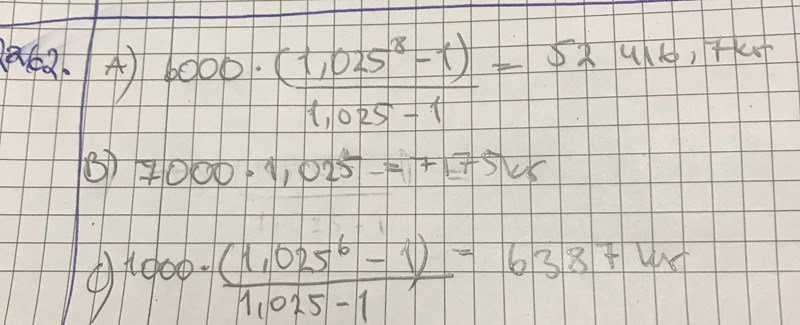 2262. A) 6000 · (1,025⁸ - 1) / 1,025 - 1 = 52 416,7 kr
B) 7000 · 1,025 = 7175 kr
C) 1000 · (1,025⁶ - 1) / 1,025 - 1 = 6387 kr